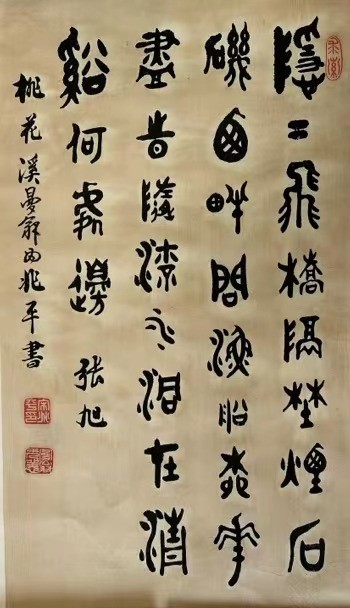 隱二飛橋隔埜煙石
磯西畔問漁船桃花
盡日隨流水洞在清
谿何處邊 張旭
桃花溪曼兆平書